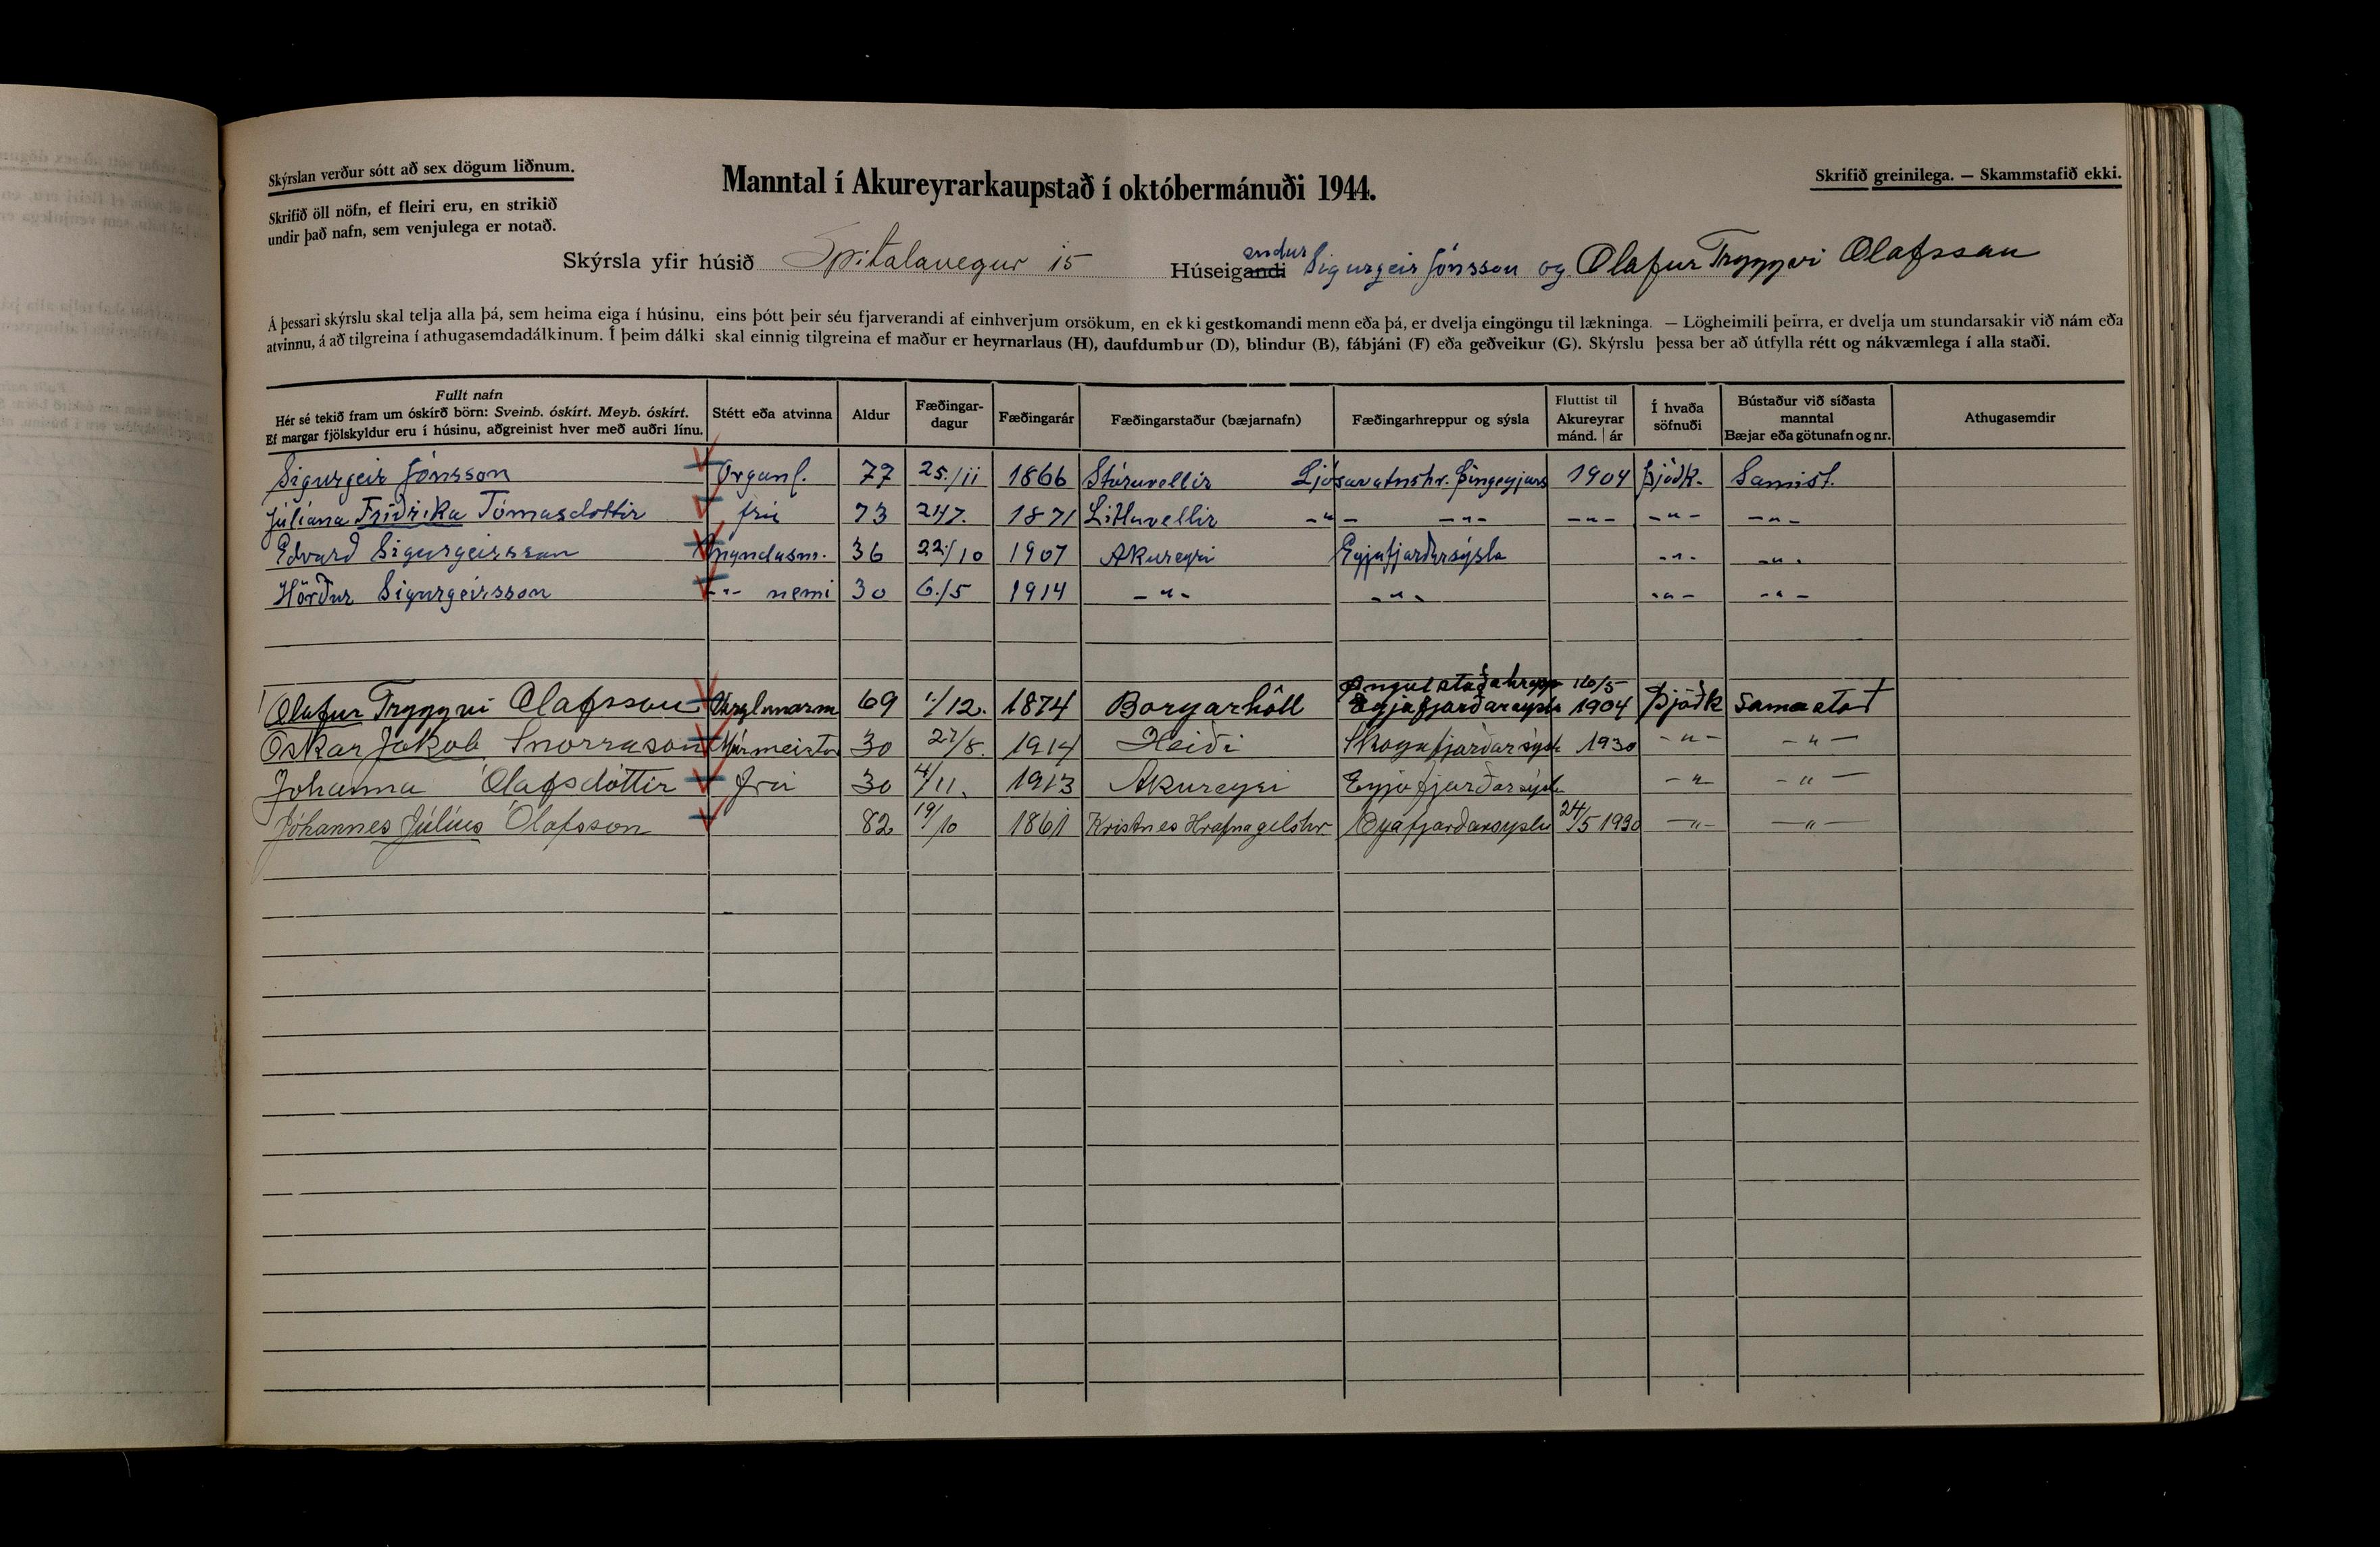 Skýrslan verður sótt að sex dögum liðnum.
Manntal í Akureyrarkaupstað í októbermánuði 1944.
Skrifið greinilega. — Skammstafið ekki.
Skrifið öll nöfn, ef fleiri eru, en strikið
undir það nafn, sem venjulega er notað.
Skýrsla yfir húsið Spítalavegur 15 Húseigandi endur Sigurgeir Jónsson og Olafur Tryggvi Olafsson
Á þessari skýrslu skal telja alla þá, sem heima eiga í húsinu, eins þótt þeir séu fjarverandi af einhverjum orsökum, en ekki gestkomandi menn eða þá, er dvelja eingöngu til lækninga. — Lögheimili þeirra, er dvelja um stundarsakir við nám eða
atvinnu, á að tilgreina í athugasemdadálkinum. Í þeim dálki skal einnig tilgreina ef maður er heyrnarlaus (H), daufdumbur (D), blindur (B), fábjáni (F) eða geðveikur (G). Skýrslu þessa ber að útfylla rétt og nákvæmlega í alla staði.
Fullt nafn
Hér sé tekið fram um óskírð börn: Sveinb. óskírt. Meyb. óskírt.
Ef margar fjölskyldur eru í húsinu, aðgreinist hver með auðri línu.
Stétt eða atvinna
Aldur
Fæðingar-
dagur
Fæðingarár
Fæðingarstaður (bæjarnafn)
Fæðingarhreppur og sýsla
Fluttist til
Akureyrar
mánd. | ár
Í hvaða
söfnuði
Bústaður við síðasta
manntal
Bæjar eða götunafn og nr.
Athugasemdir
Sigurgeir Jónsson Organl. 77 25./11 1866 Stóruvellir Ljósavatnshr. Þingeyjars 1904 Þjóðk. Samist.
Júlíana Friðrika Tómasdóttir frú 73 24/7. 1871 Litluvellir -"- -"- -"- -"- -"-
Edvard Sigurgeirsson myndasm. 36 22/10 1907 Akureyri Eyjafjarðarsýsla -"- -"-
Hörður Sigurgeirsson -"- nemi 30 6./5 1914 -"- -"- -"- -"-
Olafur Tryggvi Olafsson 69 1./12. 1874 Borgarhóll Öngulstaðahrepp Eyjafjarðarsýslu 1904 Þjóðk Samastað
Óskar Jakob Snorrason Múrmeistari 30 27/8. 1914 Heiði Skagafjarðarsýsl 1930 -"- -"-
Johanna Olafsdóttir frú 30 4/11. 1913 Akureyri Eyjafjarðarsýsl -"- -"-
Jóhannes Júlíus Ólafsson 82 19/10 1861 Kristnes Hrafnagilshr Eyafjarðarsyslu 24/5 1930 -"- -"-